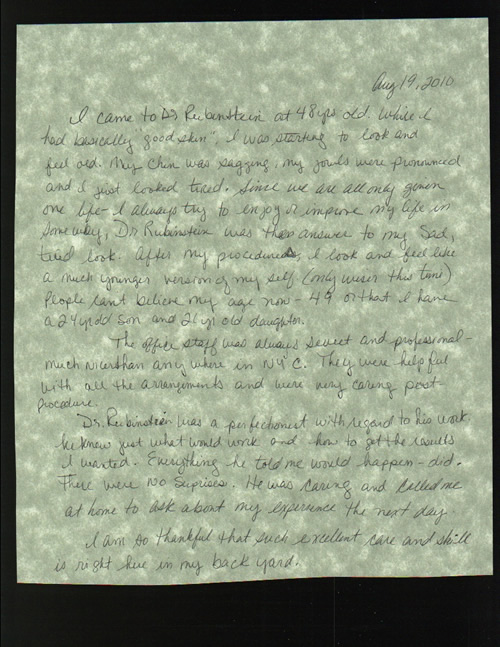 Aug 19, 2010
I came to Dr Rubinstein at 48 yrs old. While I
had basically "good skin", I was starting to look and
feel old. My chin was sagging, my jowls were pronounced
and I just looked tired. Since we are all only given
one life - I always try to enjoy or improve my life in
some way, Dr Rubinstein was the answer to my sad,
tired look. After my procedures, I look and feel like
a much younger version of my self (only wiser this time)
People can't believe my age now - 49 or that I have
a 24 yr old son and 21 yr old daughter.
The office staff was always sweet and professional -
much nicer than any where in NYC. They were helpful
with all the arrangements and were very caring post-
procedure.
Dr. Rubinstein was a perfectionest with regard to his work
he knew just what would work and how to get the results
I wanted. Everything he told me would happen - did.
There were No Suprises. He was caring and called me
at home to ask about my experience the next day.
I am so thankful that such excellent care and skill
is right here in my back yard.